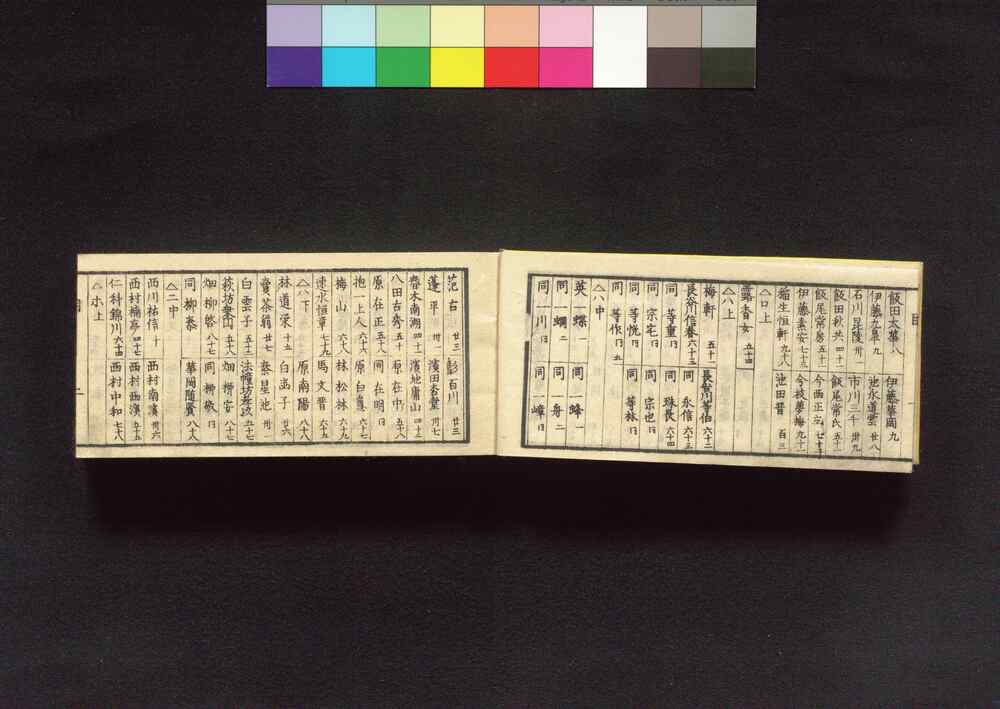 飯田太華 八 伊藤華岡 九
伊藤九皐 九 池永道雲 廿八
石川昆陵 卅一 市川三千 卅九
飯田秋共 四十二 飯尾常氏 五十一
飯尾常房 五十一 今西正立 七十三
伊藤素安 七十三 今枝夢梅 九十一
稲生恒軒 九十八 池田晋 百三
△ロ上
露香女 五十四
△ハ上
梅軒 五十一 長谷川等伯 六十二
長谷川信春 六十三 同 永信 六十三
同 等重 同 同 珠長 六十四
同 宗宅 同 同 宗也 同
同 等悦 同 同 等林 同
同 等作 同
△ハ中
英一蝶 一 同一蜂 一
同一蜩 二 同一舟 二
同一川 同 同一峰 同
范古 廿三 彭百川 廿三
蓬平 卅一 濱田杏堂 卅七
春木南湖 四十二 濱地庸山 四十三
八田古秀 五十一 原在中 五十八
原在正 五十八 同在明 同
抱一上人 六十六 原白 六十七
梅山 六十八 林松林 六十九
速水恒章 七十九 馬文晋 六十五
△ハ下 原南陽 八十八
林道栄 十三 白幽子 廿六
賣茶翁 廿七 蔡星池 卅
白雲子 五十三 法幢坊 五十七
萩坊奥山 五十八 畑柳安 八十七
畑柳啓 八十七 同柳敬 同
同柳泰 華岡随賢 八十八
△ニ中
西川祐信 十 西村南濱 卅六
西村楠亭 四十七 西村西濱 五十五
仁科錦川 六十四 西村中和 七十八
△ホ上